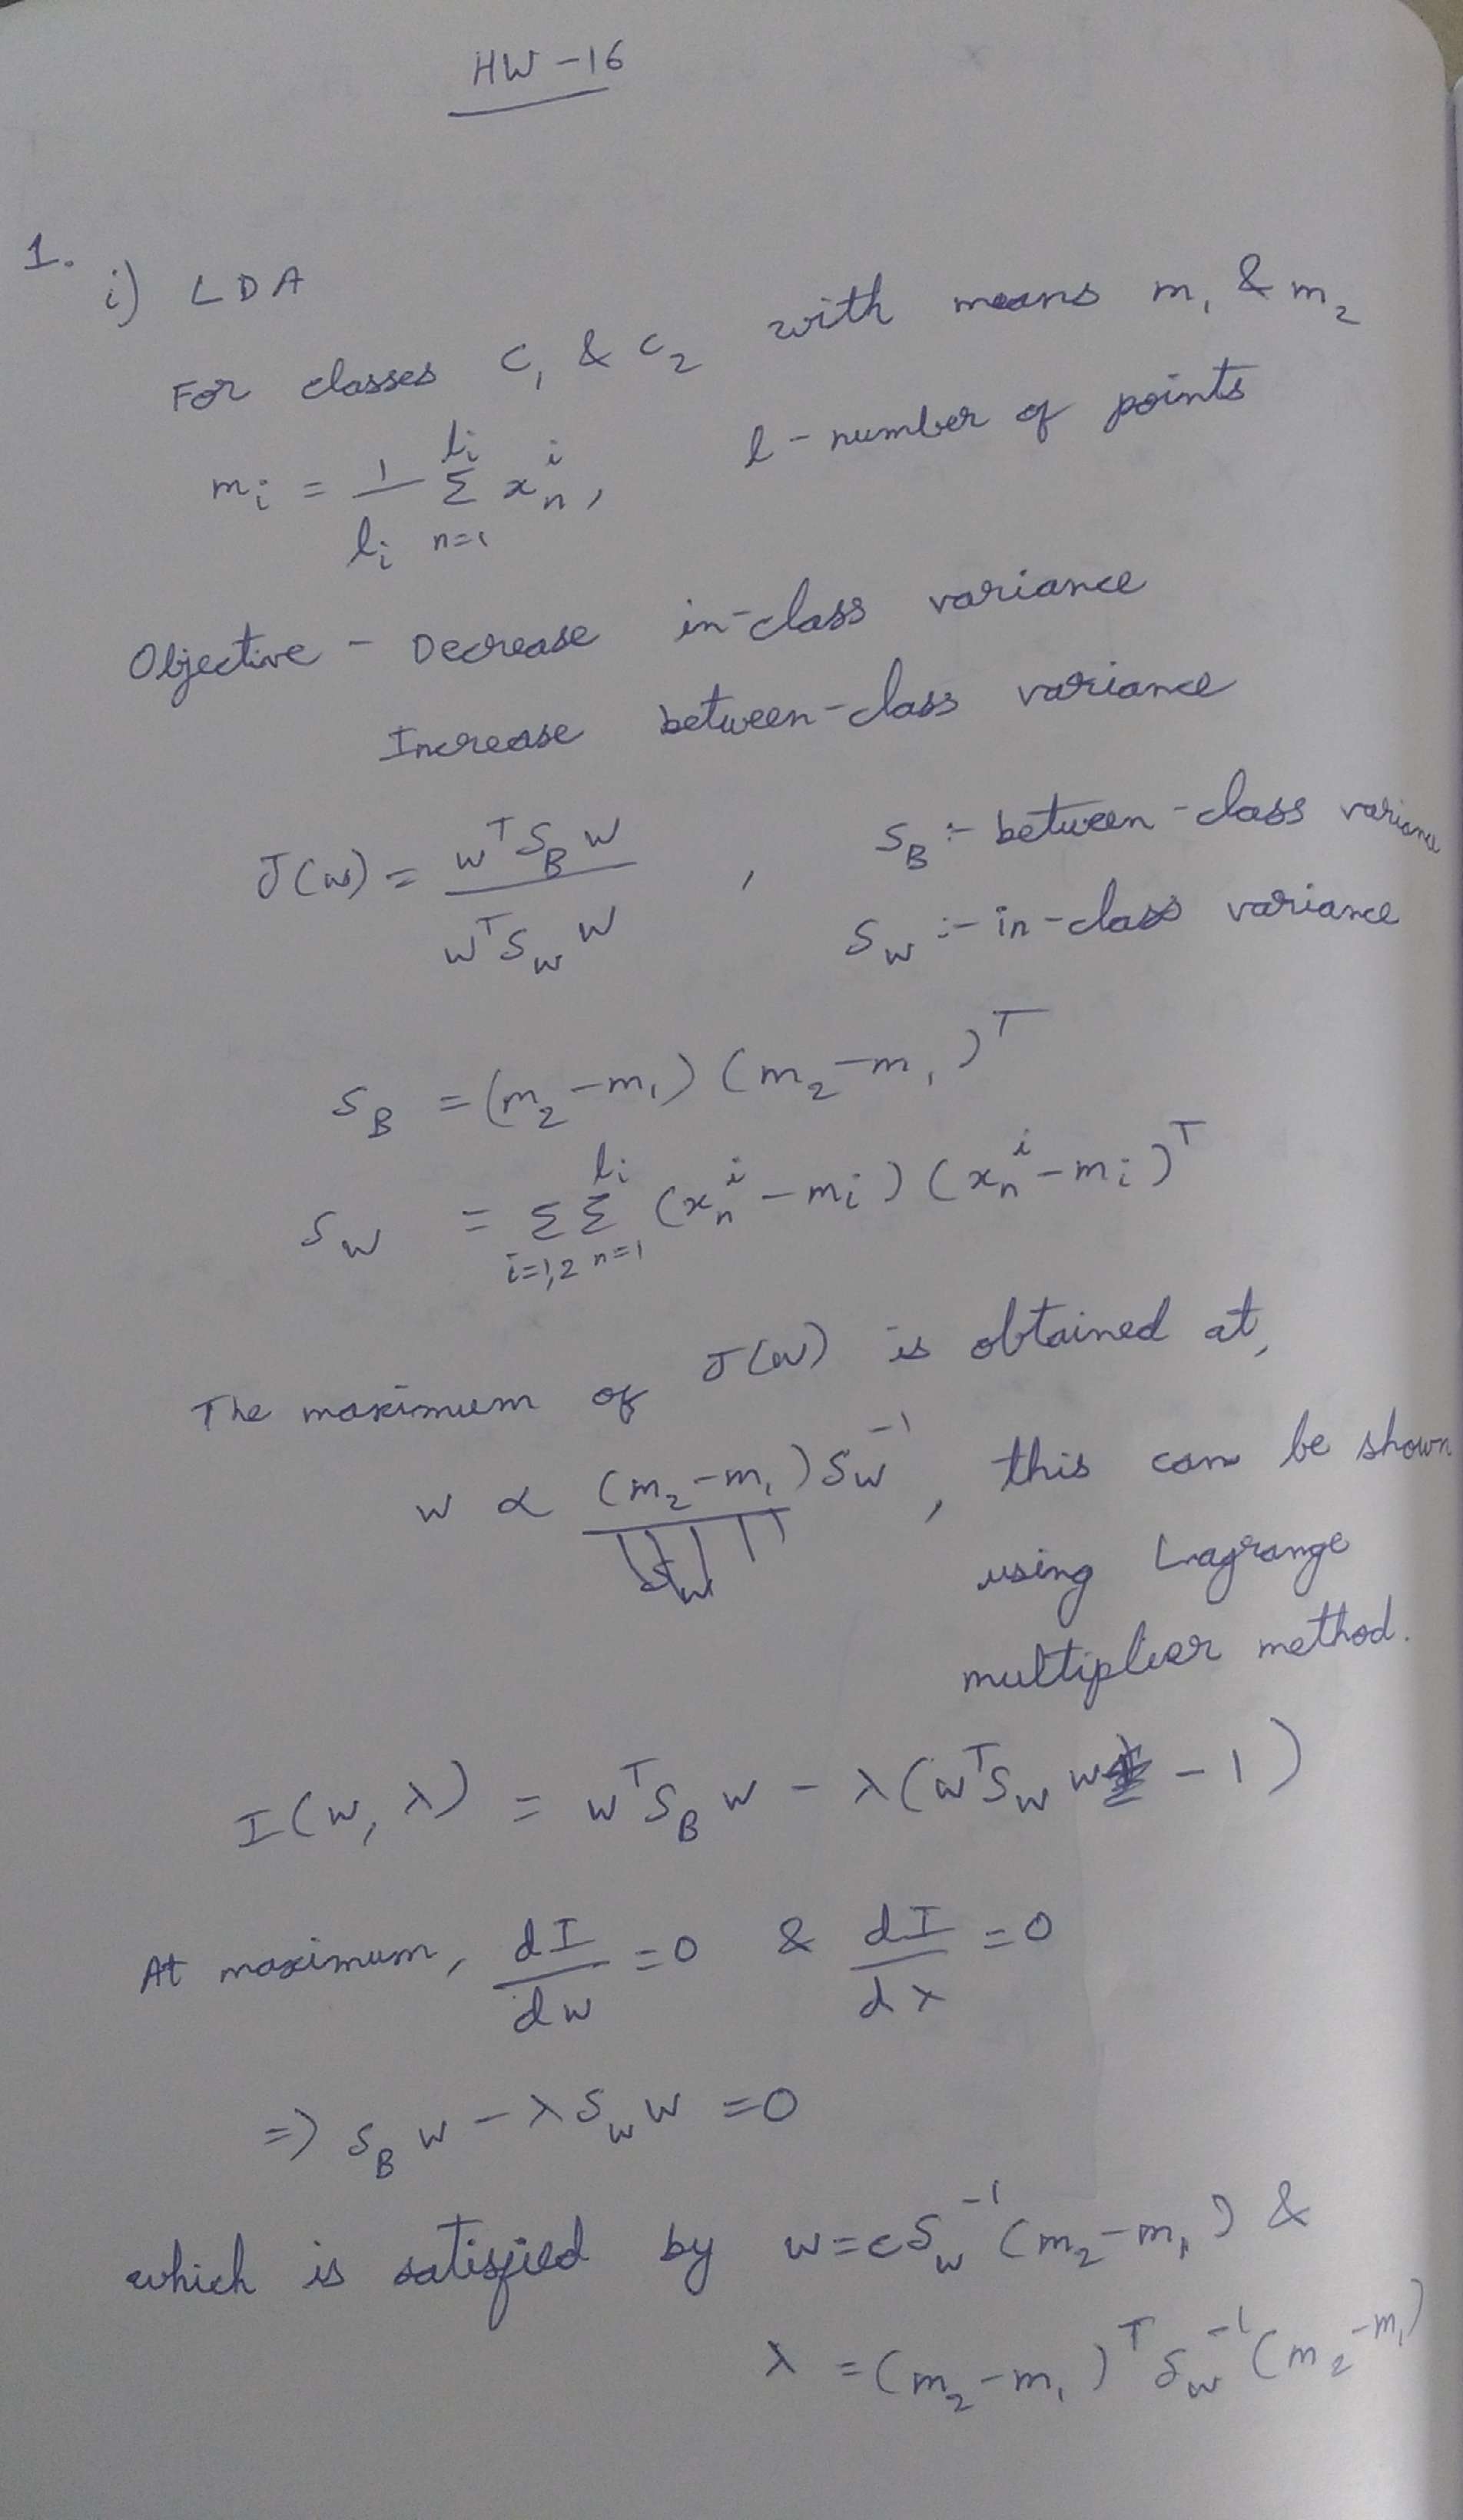 HW - 16
1.
i) LDA
For classes C₁ & C₂ with means m₁ & m₂
mᵢ = 1/lᵢ Σₙ₌₁^lᵢ xₙⁱ, l - number of points
Objective - Decrease in-class variance
Increase between-class variance
J(w) = wᵀS_B w / wᵀS_W w , S_B :- between-class variance
S_W :- in-class variance
S_B = (m₂ - m₁) (m₂ - m₁)ᵀ
S_W = Σᵢ₌₁,₂ Σₙ₌₁^lᵢ (xₙⁱ - mᵢ) (xₙⁱ - mᵢ)ᵀ
The maximum of J(w) is obtained at,
w ∝ (m₂ - m₁) S_W⁻¹, this can be shown
using Lagrange
multiplier method.
I(w, λ) = wᵀS_B w - λ(wᵀS_W w - 1)
At maximum, dI/dw = 0 & dI/dλ = 0
=) S_B w - λ S_W w = 0
which is satisfied by w = c S_W⁻¹ (m₂ - m₁) &
λ = (m₂ - m₁)ᵀ S_W⁻¹ (m₂ - m₁)